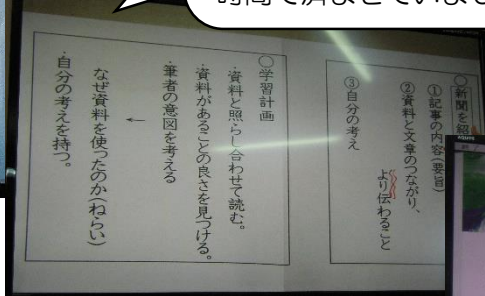 時間で済ませていませ
○新聞を紹
①記事の内容(要旨)
②資料と文章のつながり、
より伝わること
③自分の考え
○学習計画
・資料と照らし合わせて読む。
・資料があることの良さを見つける。
・筆者の意図を考える
←
なぜ資料を使ったのか(ねらい)
・自分の考えを持つ。